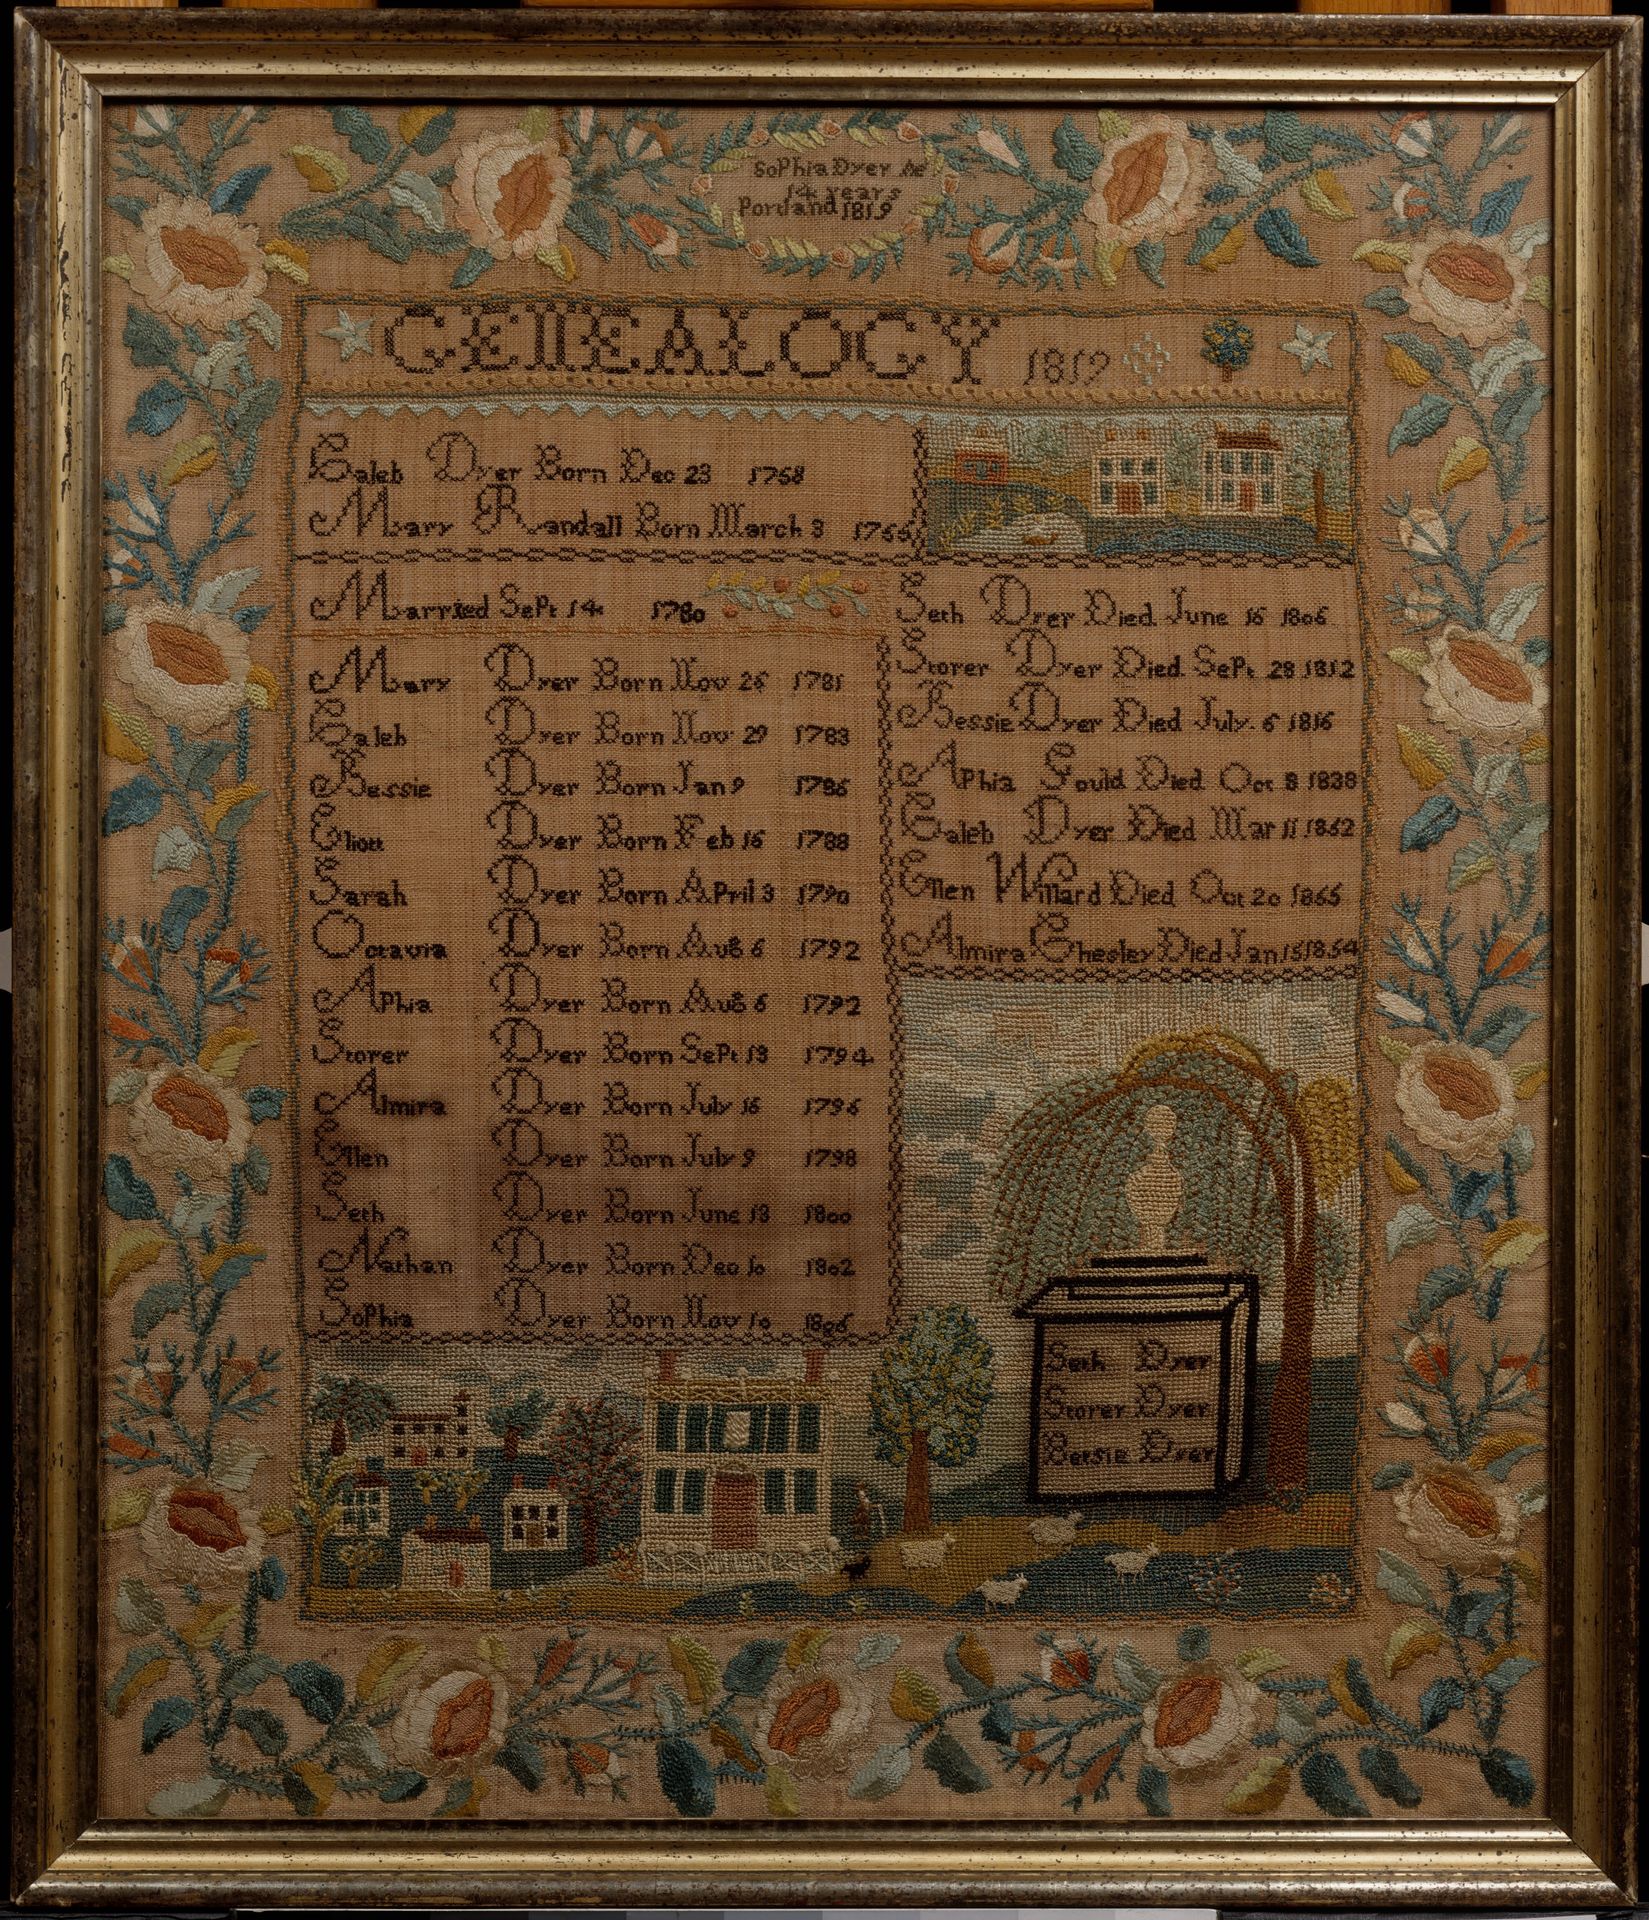 SoPhia Dyer Ae
14 years
Portland 1819
GENEALOGY 1819
Caleb Dyer Born Dec 23 1758
Mary Randall Born March 3 1766
Married SePt 14 1780
Mary Dyer Born Nov 26 1781
Caleb Dyer Born Nov 29 1783
Bessie Dyer Born Jan 9 1786
Eliott Dyer Born Feb 16 1788
Sarah Dyer Born APril 3 1790
Octavia Dyer Born Aug 6 1792
APhia Dyer Born Aug 6 1792
Storer Dyer Born SePt 13 1794
Almira Dyer Born July 16 1796
Ellen Dyer Born July 9 1798
Seth Dyer Born June 13 1800
Nathan Dyer Born Dec 10 1802
SoPhia Dyer Born Nov 10
Seth Dyer Died June 16 1806
Storer Dyer Died SePt 28 1812
Bessie Dyer Died July 6 1816
APhia Gould Died Oct 8 1838
Caleb Dyer Died Mar 11 1862
Ellen Willard Died Oct 20 1865
Almira Chesley Died Jan 15 1854
Seth Dyer
Storer Dyer
Betsie Dyer